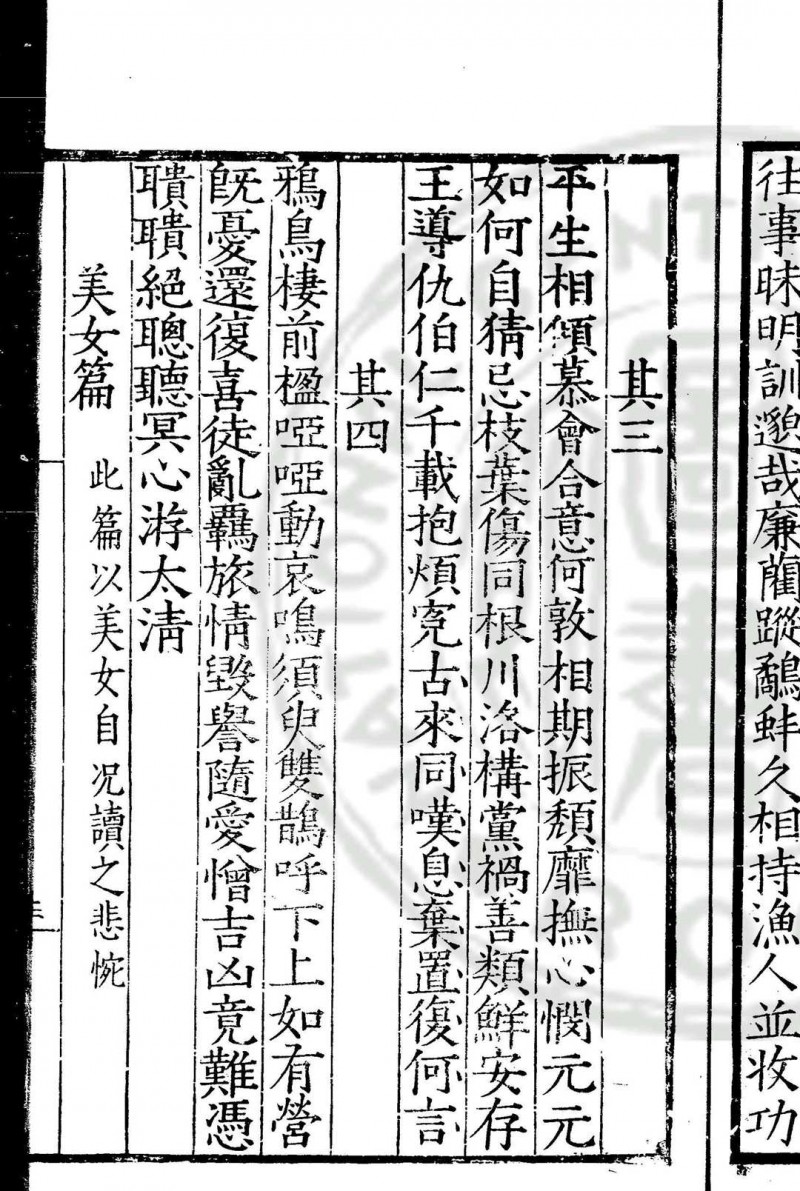 往事昧明訓邈哉廉藺蹤鷸蚌久相持漁人並收功
其三
平生相傾慕會合意何敦相期振頹靡撫心憫元元
如何自猜忌枝葉傷同根川洛構黨禍善類鮮安存
王導仇伯仁千載抱煩寃古來同嘆息棄置復何言
其四
鴉鳥棲前楹啞啞動哀鳴須臾雙鵲呼下上如有營
旣憂還復喜徒亂羈旅情毀譽隨愛憎吉凶竟難憑
聵聵絕聰聽冥心游太淸
美女篇 此篇以美女自况讀之悲惋